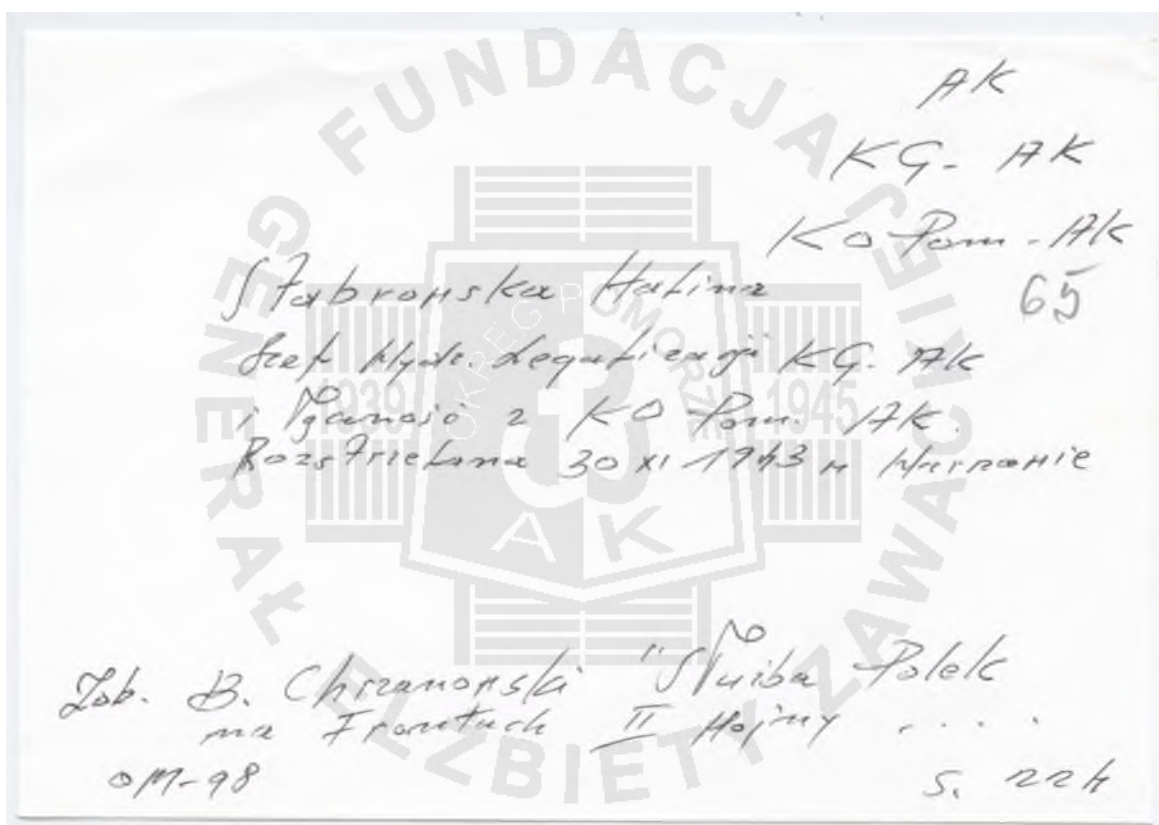 AK
KG - AK
KO Pom - AK
65
Stabrowska Halina
Szef Wydz. Legalizacji KG. AK
i Łączność z KO Pom. AK.
Rozstrzelana 30 XI 1943 w Warszawie
Zob. B. Chrzanowski "Służba Polek
na Frontach II Wojny ....
OM-98
s. 224
FUNDACJA
GENERAŁ ELŻBIETY ZAWACKIEJ
OKRĘG POMORZE
1939
1945
AK